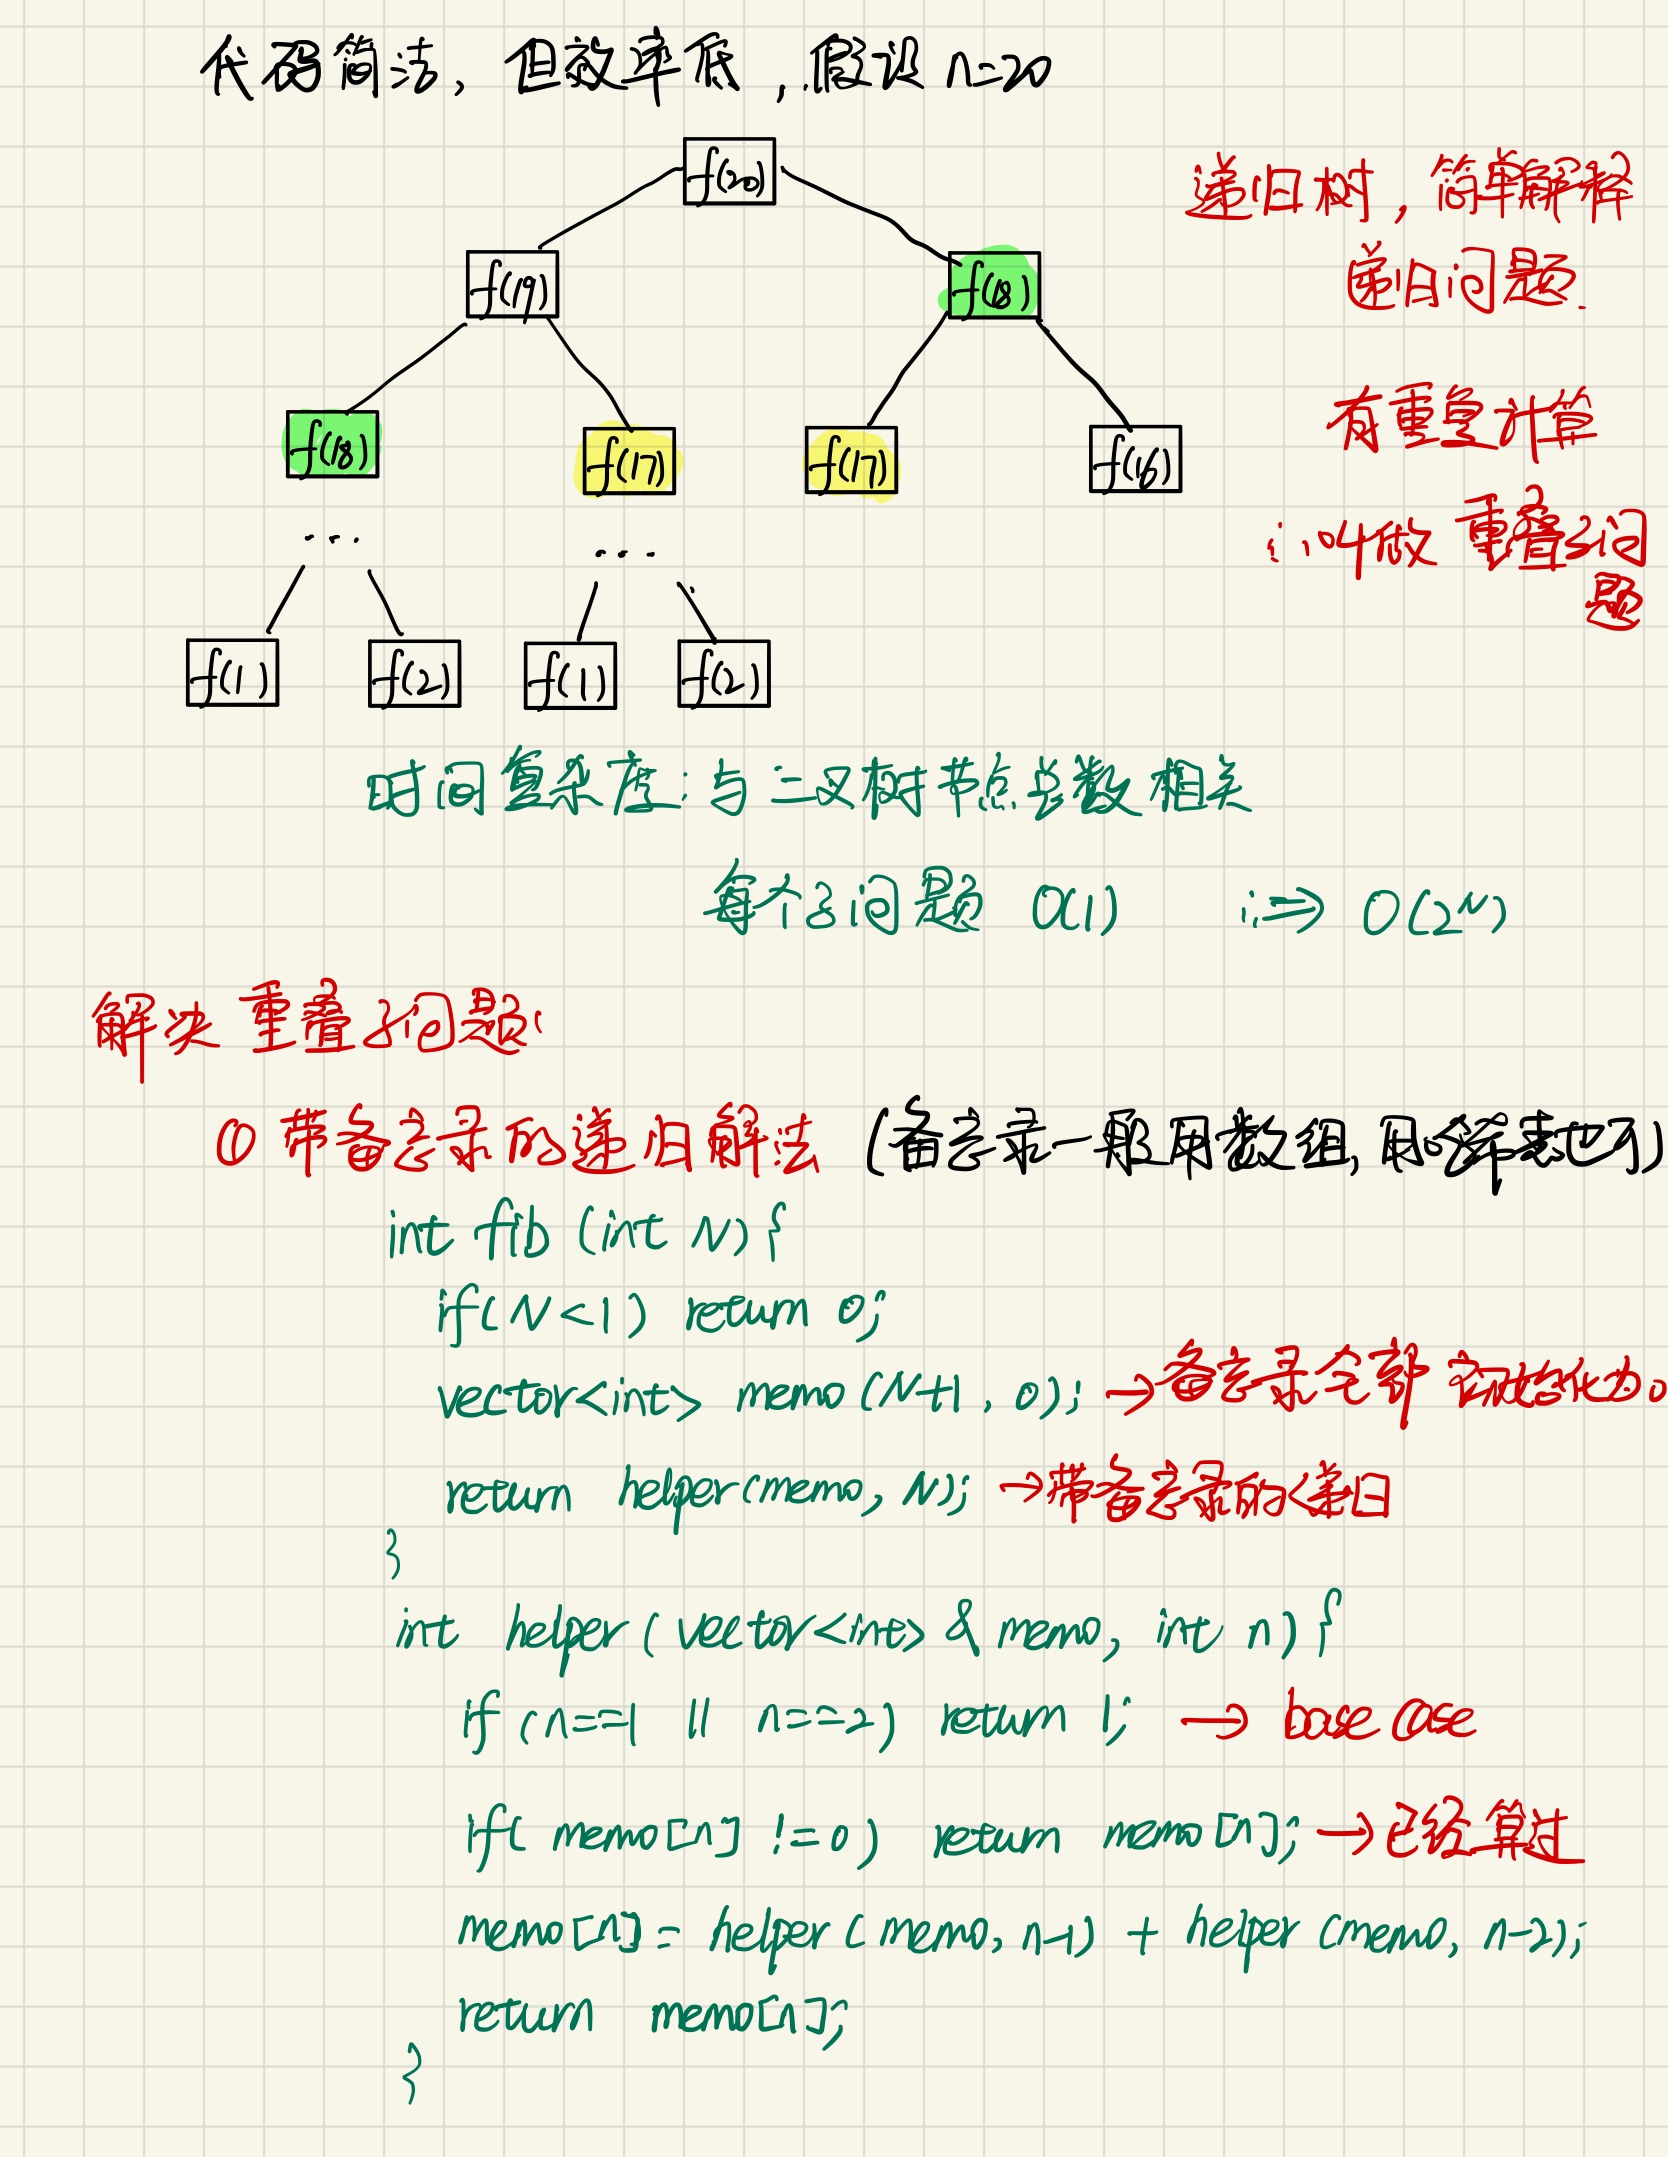 代码简洁，但效率低，假设 n=20
f(20)
递归树，简单解释
递归问题.
f(19) f(18)
有重复计算
f(18) f(17) f(17) f(16)
∴叫做 重叠子问
题
... ...
f(1) f(2) f(1) f(2)
时间复杂度：与二叉树节点总数相关
每个子问题 O(1) ∴⇒ O(2^N)
解决重叠子问题：
① 带备忘录的递归解法 (备忘录一般用数组,用哈希表也可)
int fib (int N) {
if(N<1) return 0;
vector<int> memo (N+1, 0); →备忘录全部初始化为0
return helper(memo, N); →带备忘录的递归
}
int helper ( vector<int> & memo, int n) {
if (n==1 || n==2) return 1; → base case
if( memo[n] !=0) return memo[n]; →已经算过
memo[n] = helper ( memo, n-1) + helper (memo, n-2);
return memo[n];
}